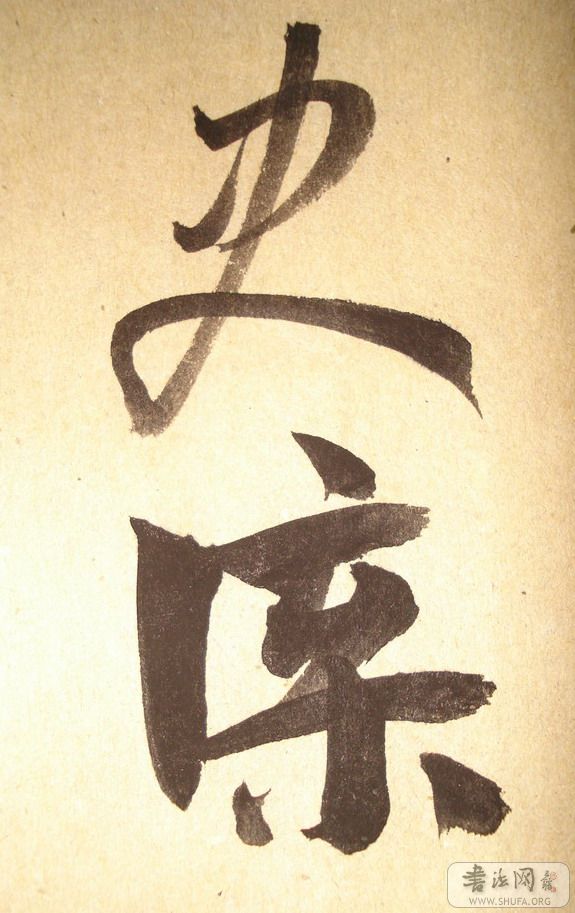 史案
書法网
WWW.SHUFA.ORG